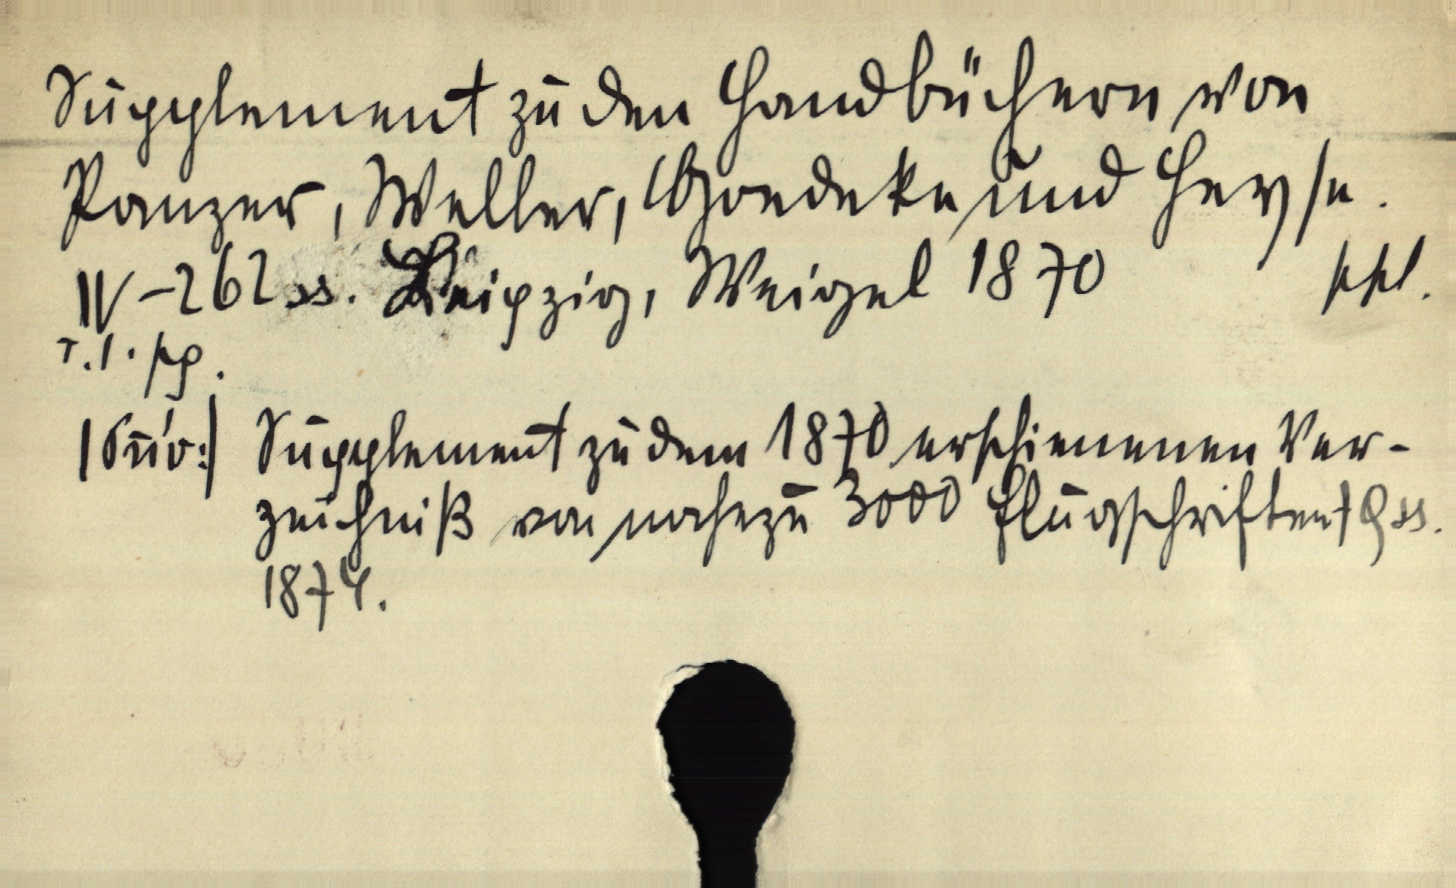 Supplement zu den Handbüchern von
Panzer, Weller, Goedeke und Heyse.
IV–262 ss. Leipzig, Weigel 1870 ppl.
T. I. pp.
Supplement zu dem 1870 erschienenen Ver-
zeichniß von nahezu 3000 Flugschriften ss.
1874.